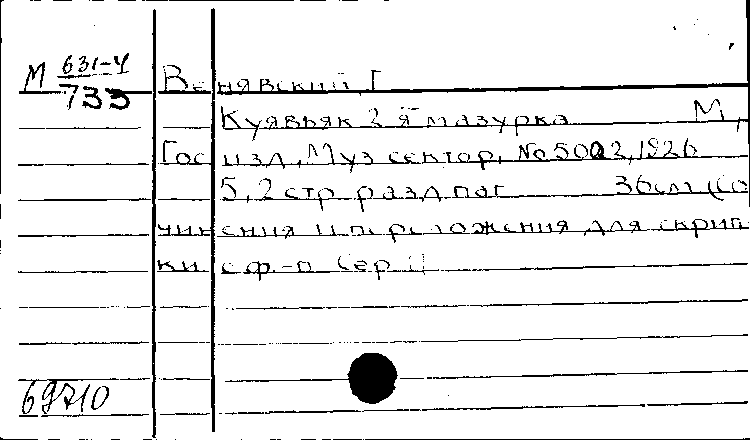 М 631-4
733
Венявский, Г.
Куявьяк 2 я мазурка М,
Гос изд, Муз сектор, No 5002, 1926
5, 2 стр разд паг 36см (Со
чинения и переложения для скрип
ки с ф.-п Сер I)
69710